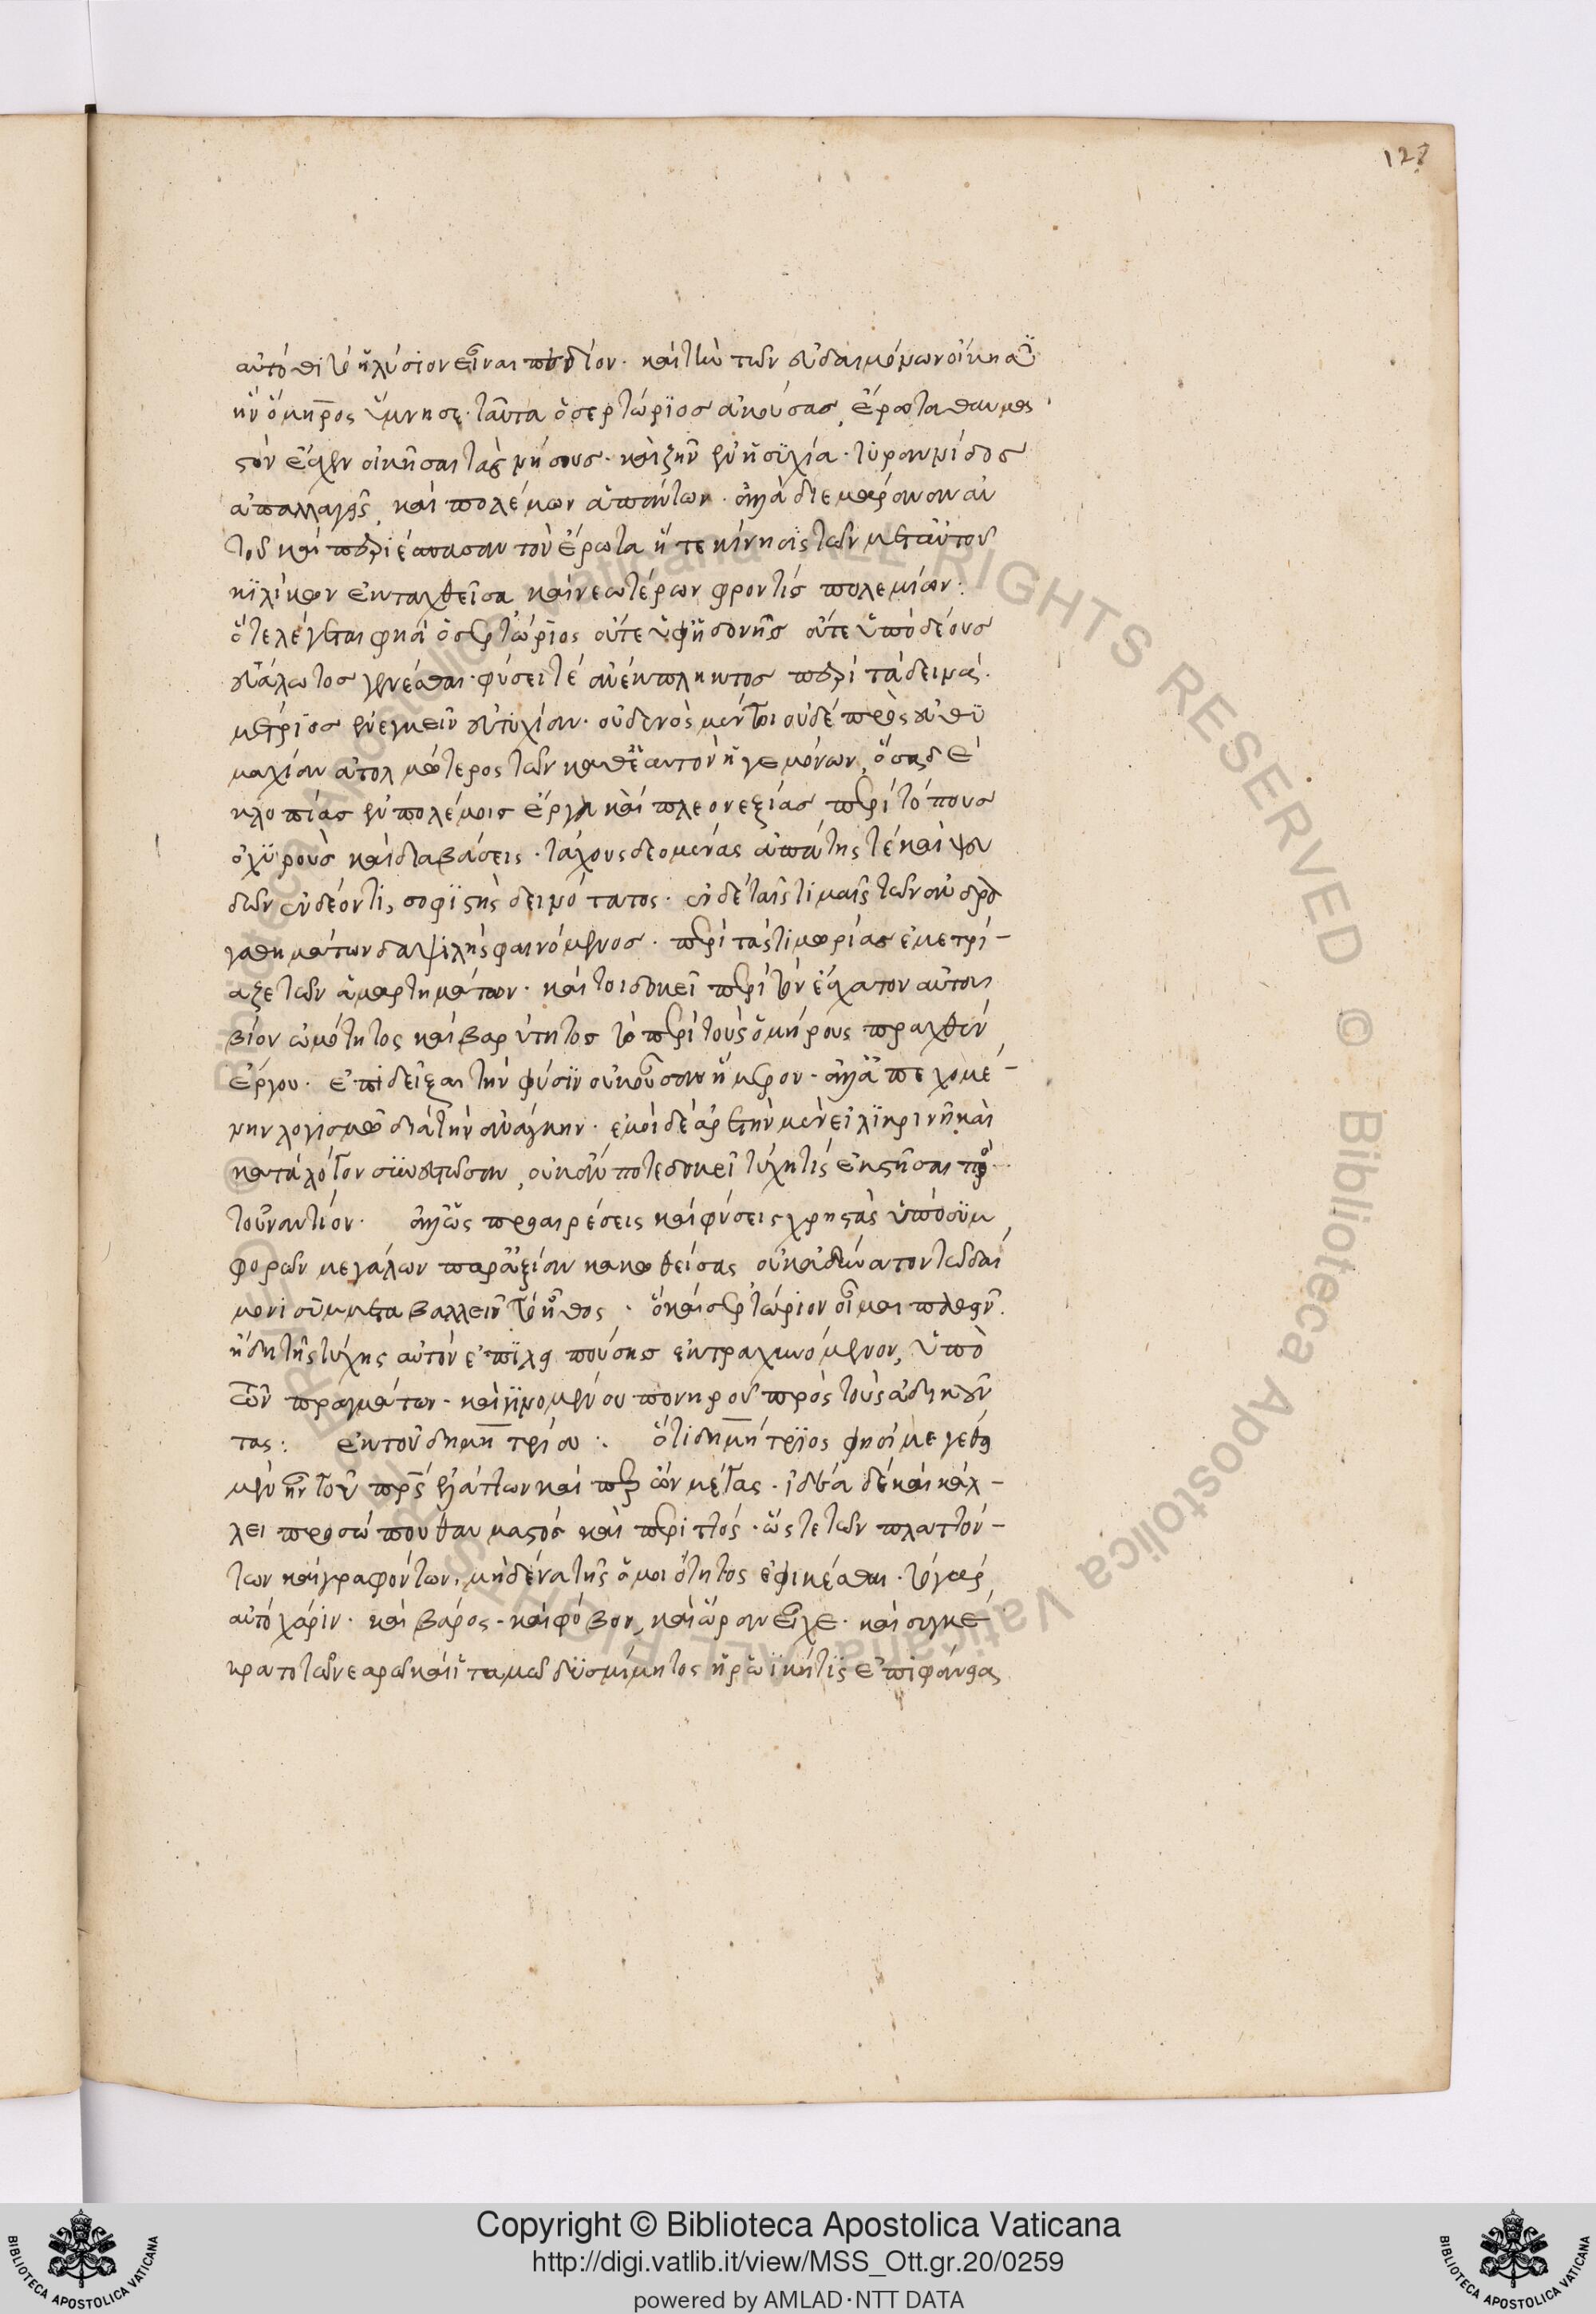 127
αὐτόθι τὸ ἠλύσιον εἶναι πεδίον· καὶ τὴν τῶν εὐδαιμόνων οἴκησιν
ἣν ὅμηρος ὕμνησε· ταῦτα ὁ σερτώριος ἀκούσας, ἔρωτα θαυμα
στὸν ἔσχεν οἰκῆσαι τὰς νήσους· καὶ ζῆν ἐν ἡσυχία· τυραννίδος
ἀπαλλαγεὶς, καὶ πολέμων ἁπάντων· ἀλλὰ διεμάραναν αὐ
τοῦ καὶ περιέσπασαν τὸν ἔρωτα ἥ τε κίνησις τῶν μετ αὐτοῦ
κιλίκων ἐνταχθεῖσα καὶ νεωτέρων φροντὶς πολεμίων:
ὅτι λέγεται φησὶ ὁ σερτώριος οὔτε ὑφ ἡδονῆς οὔτε ὑπὸ δέους
εὐάλωτος γενέσθαι· φύσει τὲ ἀνέκπληκτος περὶ τὰ δεινά·
μέτριος ἐνεγκεῖν εὐτυχίαν· οὐδενὸς μέντοι οὐδὲ πρὸς εὐθυ
μαχίαν ἀτολμότερος τῶν καθ ἑαυτὸν ἡγεμόνων, ὅσα δὲ
κλοπίας ἐν πολέμοις ἔργα καὶ πλεονεξίας περὶ τόπους
ὀχυροὺς καὶ διαβάσεις· τάχους δεομένας ἀπάτης τὲ καὶ ψευ
δῶν ἐν δέοντι, σοφιστὴς δεινότατος· ἐν δὲ ταῖς τιμαῖς τῶν ἀνδρα
γαθημάτων δαψιλὴς φαινόμενος· περὶ τὰς τιμωρίας ἐμετρί–
αζε τῶν ἁμαρτημάτων· καί τοι δοκεῖ περὶ τὸν ἔσχατον αὐτοῦ
βίον ὠμότητος καὶ βαρύτητος τὸ περὶ τοὺς ὁμήρους πραχθὲν
ἔργον· ἐπιδεῖξαι τὴν φύσιν οὐκ οὖσαν ἥμερον· ἀλλ ἀπεχομέ–
νην λογισμῶ διὰ τὴν ἀνάγκην· ἐμοὶ δὲ ἀρετὴν μὲν εἰλικρινῆ καὶ
κατὰ λόγον συνεστῶσαν, οὐκ ἄν ποτε δοκεῖ τύχη τὶς ἐκστῆσαι πρὸς
τοὐναντίον· ἄλλως προαιρέσεις καὶ φύσεις χρηστὰς ὑπὸ συμ
φορῶν μεγάλων παρ ἀξίαν κακωθείσας οὐκ ἀδύνατον τῶ δαί
μονι συμμεταβαλλεῖν τὸ ἦθος· ὃ καὶ σερτώριον οἶμαι παθεῖν·
ἤδη τῆς τύχης αὐτὸν ἐπιλειπούσης ἐκτραχυνόμενον, ὑπὸ
τῶν πραγμάτων· καὶ γινομένου πονηροῦ πρὸς τοὺς ἀδικοῦν
τας: ἐκ τοῦ δημητρίου: ὅτι δημήτριος φησὶ μεγέθει
μὲν ἦν τοῦ πατρὸς ἐλάττων καί περ ὢν μέγας· ἰδέα δὲ καὶ κάλ–
λει προσώπου θαυμαστὸς καὶ περιττός· ὥστε τῶν πλαττόν–
των καὶ γραφόντων, μηδένα τῆς ὁμοιότητος ἐφικέσθαι· τὸ γὰρ
αὐτὸ χάριν· καὶ βάρος· καὶ φόβον, καὶ ὥραν εἶχε· καὶ συγκέ
κρατο τῶ νεαρῶ καὶ ἰταμῶ δυσμίμητος ἡρωϊκή τις ἐπιφάνεια
Copyright © Biblioteca Apostolica Vaticana
http://digi.vatlib.it/view/MSS_Ott.gr.20/0259
powered by AMLAD·NTT DATA
BIBLIOTECA APOSTOLICA VATICANA
BIBLIOTECA APOSTOLICA VATICANA